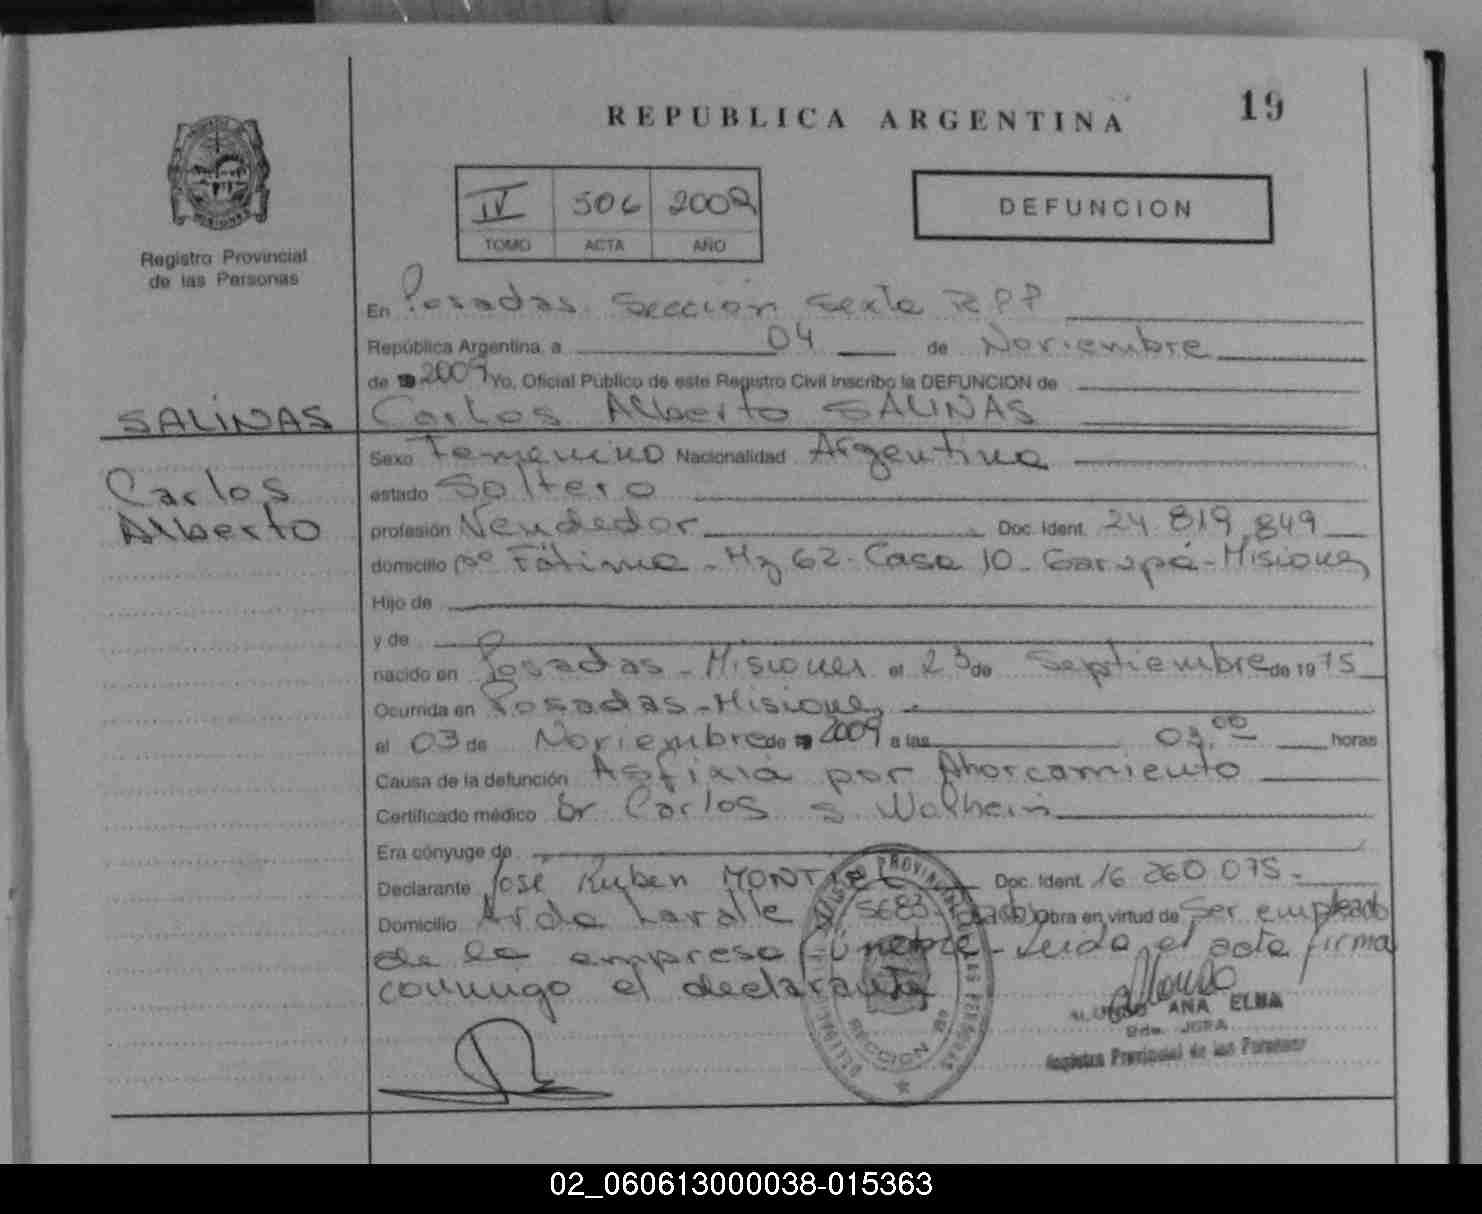 REPUBLICA ARGENTINA
19
IV 506 2009
TOMO ACTA AÑO
DEFUNCION
Registro Provincial
de las Personas
En Posadas Sección Sexta RPP
República Argentina, a 04 de Noviembre
de 19 2009 Yo, Oficial Público de este Registro Civil inscribo la DEFUNCION de
SALINAS
Carlos Alberto SALINAS
Carlos
Alberto
Sexo Femenino Nacionalidad Argentina
estado Soltero
profesión Vendedor Doc. Ident. 24.819.849
domicilio Bº Fátima - Mz 62 - Casa 10 - Garupá - Misiones
Hijo de
y de
nacido en Posadas - Misiones el 23 de Septiembre de 1975
Ocurrida en Posadas - Misiones
el 03 de Noviembre de 19 2009 a las 03.00 horas
Causa de la defunción Asfixia por Ahorcamiento
Certificado médico Dr Carlos S
Era cónyuge de
Declarante José Ruben MONTIEL Doc. Ident. 16 260 075
Domicilio Avda Lavalle 5683 - Obra en virtud de Ser empleado
de la empresa fúnebre - Leida el acta firma
conmigo el declarante
ANA ELBA
Registro Provincial de las Personas
SECCION
02_060613000038-015363